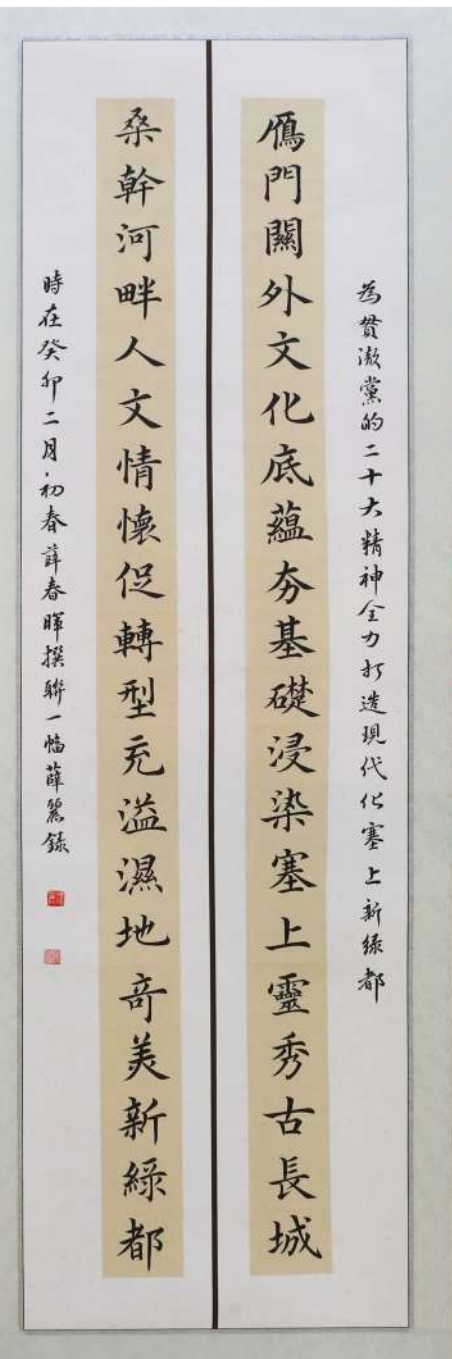 為貫澈黨的二十大精神全力打造現代化塞上新綠都
鴈門關外文化底蘊夯基礎浸染塞上靈秀古長城
桑幹河畔人文情懷促轉型充溢濕地奇美新綠都
時在癸卯二月·初春薛春暉撰聯一幅薛麗錄